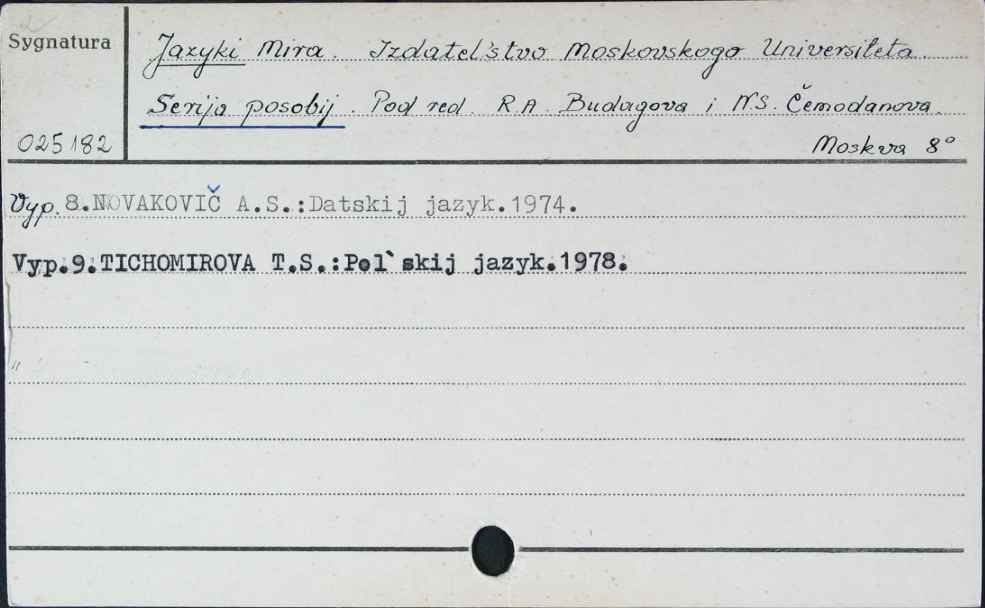 Sygnatura
Jazyki Mira. Izdatel'stvo Moskovskogo Universiteta.
Serija posobij. Pod red. R.A. Budagova i N.S. Čemodanova.
025182
Moskva 8°
Vyp. 8.NOVAKOVIČ A.S.:Datskij jazyk.1974.
Vyp.9.TICHOMIROVA T.S.:Pol`skij jazyk.1978.
"